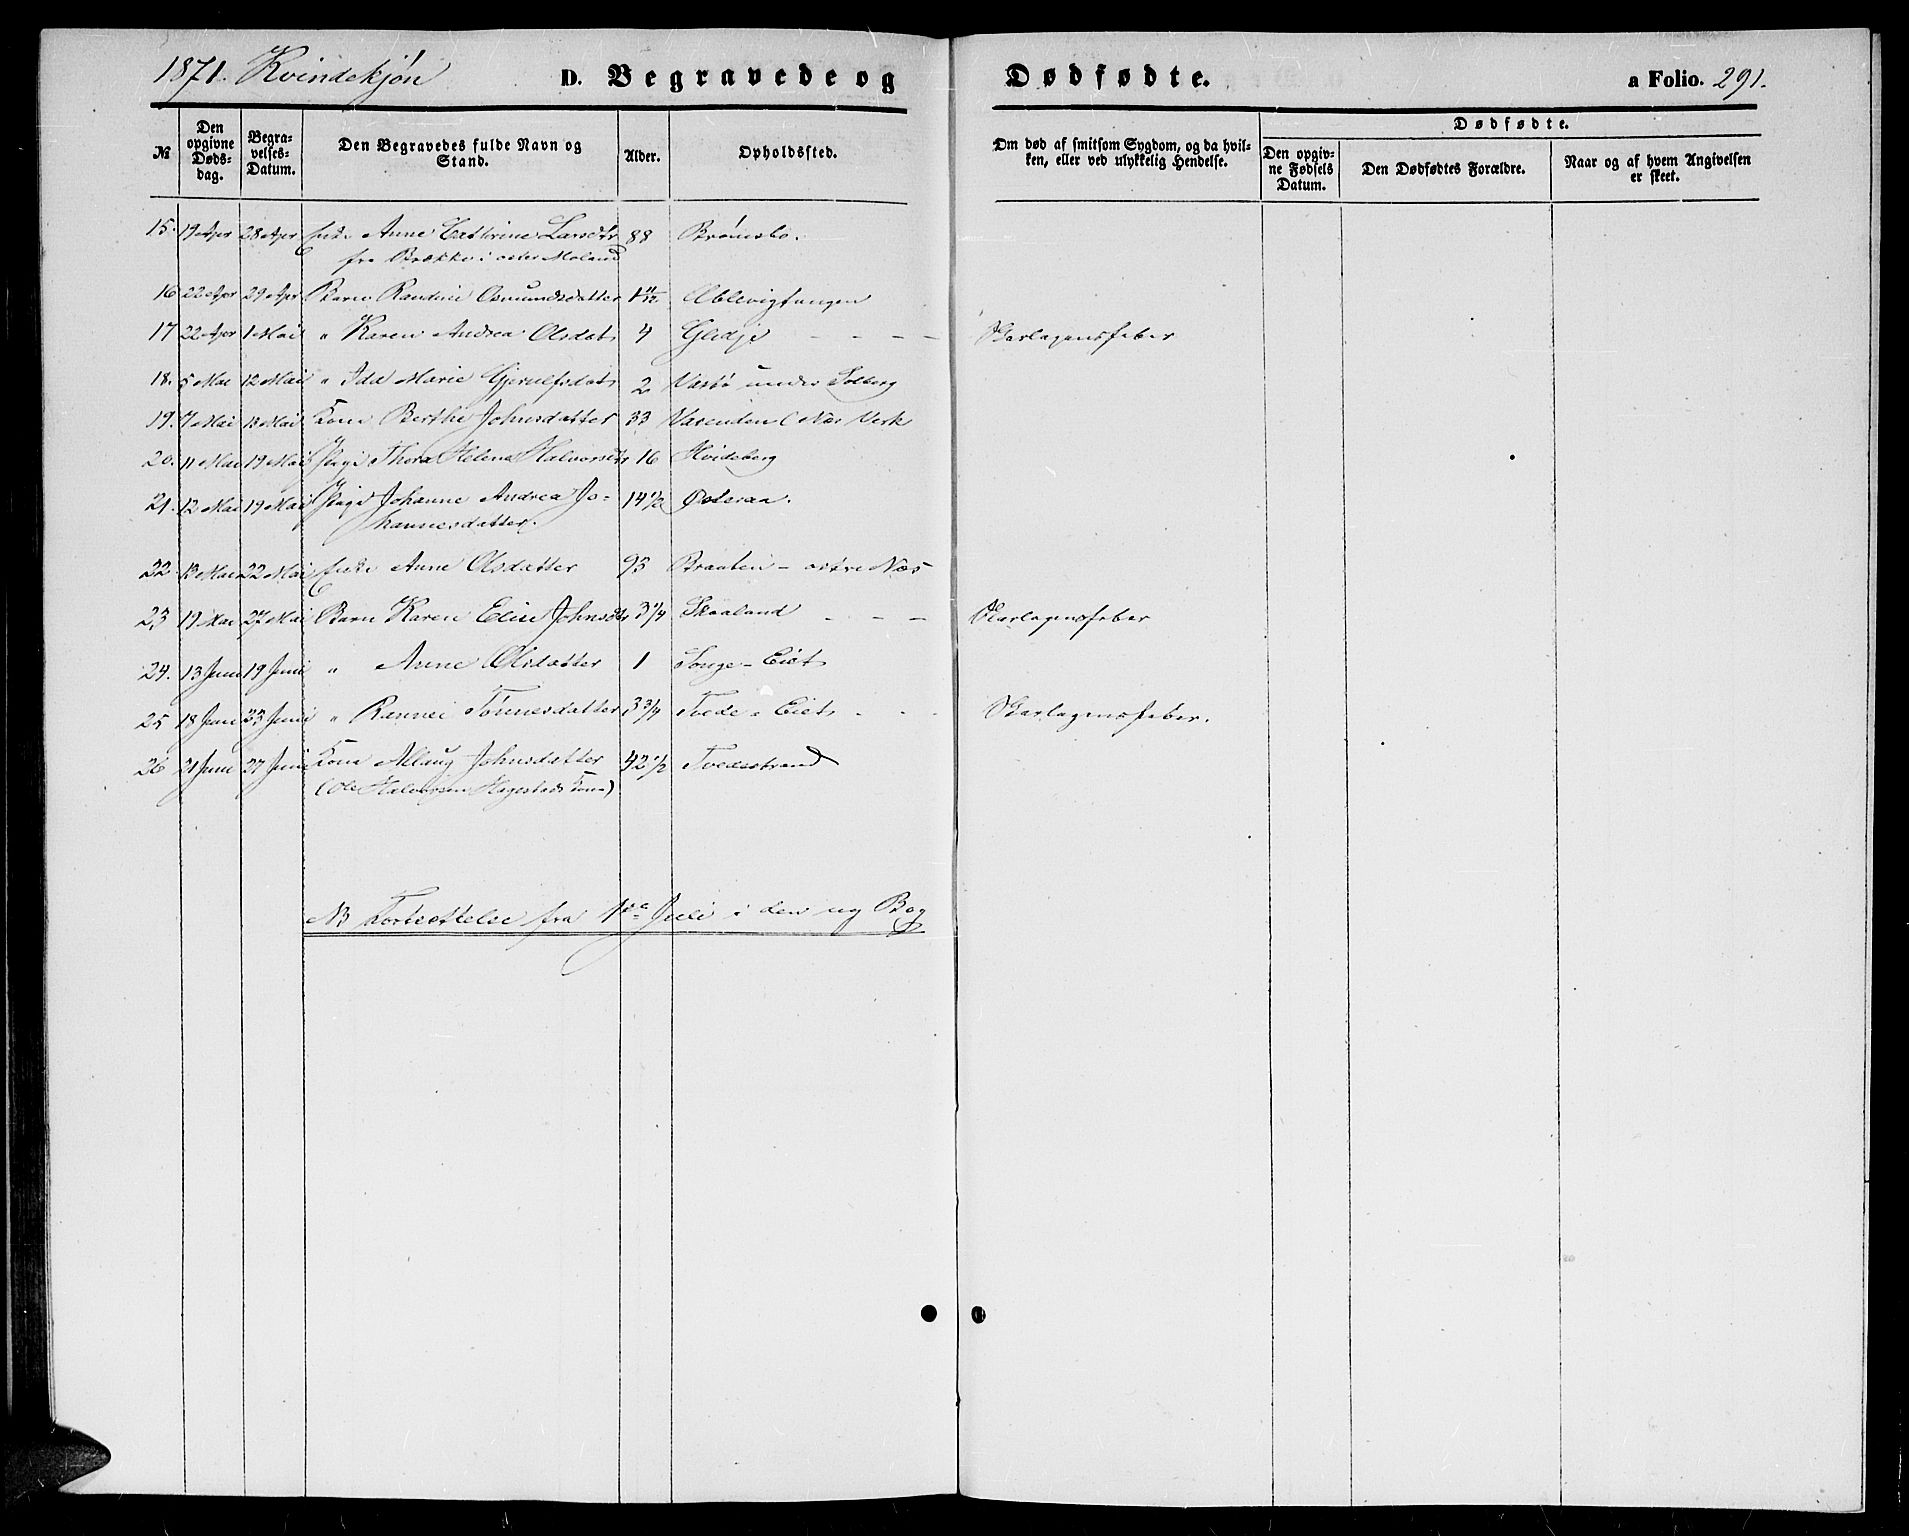 1871. Kvindekjøn D. Begravede og Dødfødte. a Folio. 291.
№ Den opgivne Døds-dag. Begra-velses-Datum. Den Begravedes fulde Navn og Stand. Alder. Opholdssted. Om død af smitsom Sygdom, og da hvil-ken, eller ved ulykkelig Hendelse. Dødfødte. Den opgiv-ne Fødsels Datum. Den Dødfødtes Forældre. Naar og af hvem Angivelsen er skeet.
15. 19 Apr 28 Apr Enke Anne Cathrine Larsdtr 88 Brømsbo.
fra Brække i øster Moland
16 22 Apr 29 Apr Barn Randine Osmundsdatter 1 11/12 Ablevigtangen
17 22 Apr 1 Mai " Karen Andrea Olsdat 4 Gledje - - - - Skarlagensfeber
18. 5 Mai 12 Mai " Ida Marie Gjerulfsdat 2 under Solberg
19. 7 Mai 13 Mai Kone Berthe Johnsdatter 33 Vasenden (Næs Verk
20. 11 Mai 19 Mai Pige Thora Helene Halvorsdtr 16 Hvideberg
21. 12 Mai 19 Mai Pige Johanne Andrea Jo- 14 1/2 Østeraa.
hannesdatter.
22. 13 Mai 22 Mai Enke Anne Olsdatter 95 Braaten - østre Næs
23 19 Mai 27 Mai Barn Karen Elise Johnsdtr 3 1/4 Skaaland - - - Skarlagensfeber
24. 13 Juni 19 Juni " Anne Olsdatter 1 Songe - Eiet
25 18 Juni 23 Juni " Rannei Tønnesdatter 3 3/4 Tvede - Eiet - - - Skarlagensfeber.
26 21 Juni 27 Juni Kone Allaug Johnsdatter 42 1/2 Tvedestrand
(Ole Halvorsen Hagestads Kone)
NB Fortsættelse fra 1ste Juli i den ny Bog